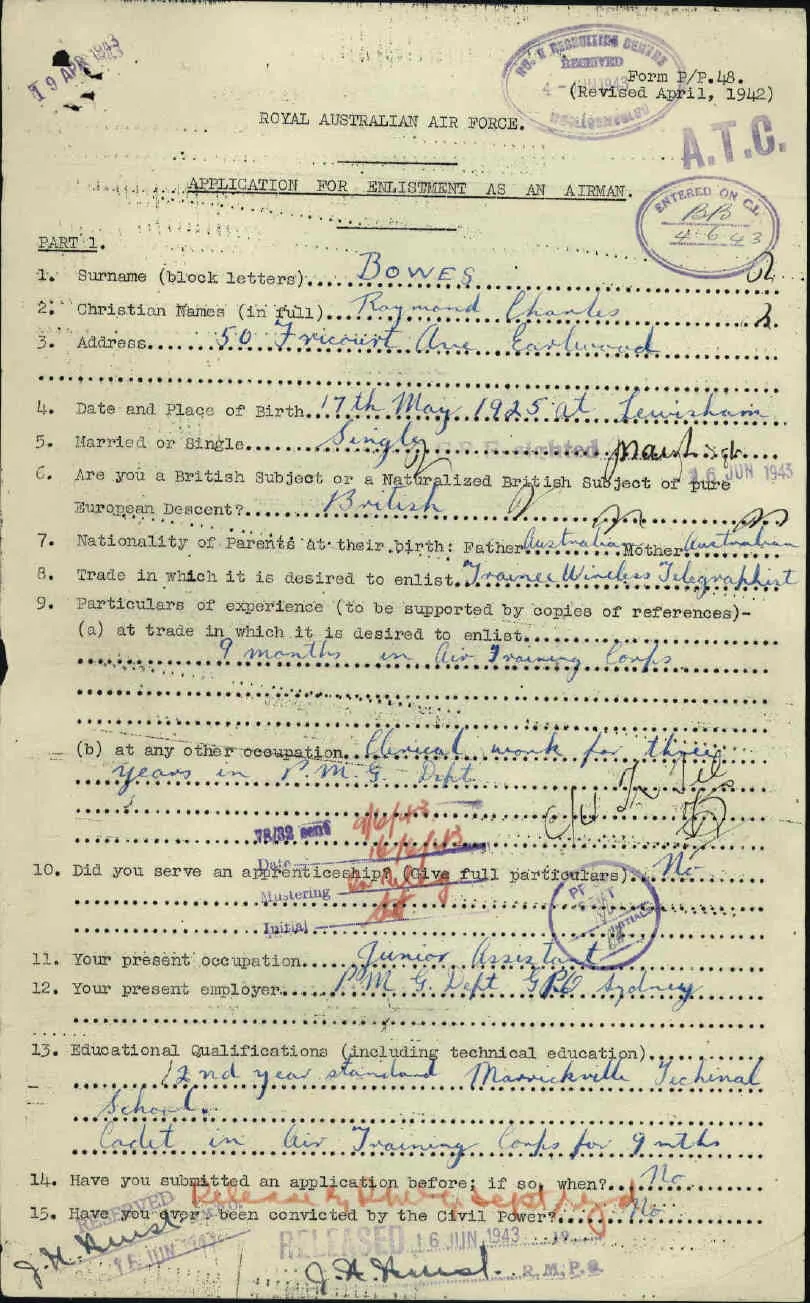 19 APR 1943
NO. 2 RECRUITING CENTRE
RECEIVED
4 - JUN 1943
Form P/P.48.
(Revised April, 1942)
ROYAL AUSTRALIAN AIR FORCE.
A.T.C.
APPLICATION FOR ENLISTMENT AS AN AIRMAN.
ENTERED ON C.I.
BB
4 6 43
PART 1.
1. Surname (block letters) BOWES
2. Christian Names (in full) Raymond Charles
3. Address 50 Fricourt Ave Earlwood
4. Date and Place of Birth 17th May 1925 at Lewisham
5. Married or Single Single
16 JUN 1943
6. Are you a British Subject or a Naturalized British Subject of pure
European Descent? British
7. Nationality of Parents at their birth: Father Australian Mother Australian
8. Trade in which it is desired to enlist. Trainee Wireless Telegraphist
9. Particulars of experience (to be supported by copies of references)-
(a) at trade in which it is desired to enlist
9 months in Air Training Corps
(b) at any other occupation Clerical work for three
years in P.M.G. Dept
78/32 sent 9/6/43
Date 16/6/43
10. Did you serve an apprenticeship? (Give full particulars) No
Mustering
Initial
11. Your present occupation Junior Assistant
12. Your present employer PM G. Dept GPO Sydney
13. Educational Qualifications (including technical education)
2nd year standard Marrickville Techinal
School.
Cadet in Air Training Corps for 9 mths
14. Have you submitted an application before; if so, when? No
Release by
15. Have you ever been convicted by the Civil Power? No
RECEIVED
16 JUN 1943
J. H. Hurst
RELEASED 16 JUN 1943 19
J. H. Hurst. R.M.P.O.